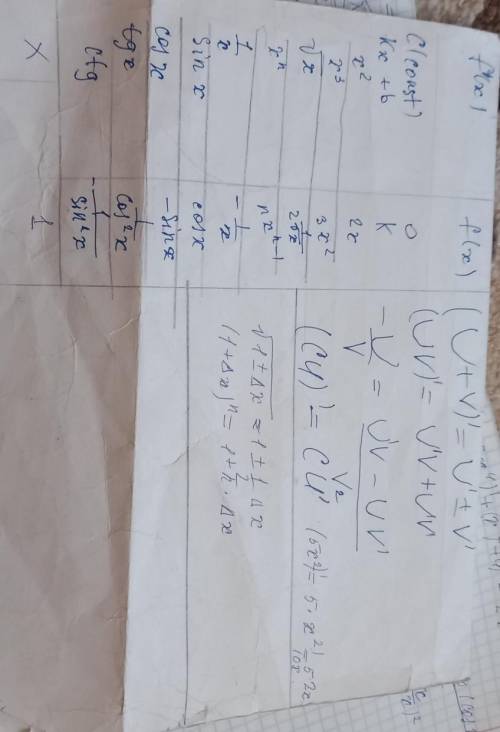 f'(x) f'(x)
C(const) 0
Kx + b K
x² 2x
x³ 3x²
√x 1/2√x
xⁿ nxⁿ⁻¹
1/x -1/x
Sin x cos x
Cos x -Sin x
tg x 1/Cos²x
ctg -1/sin²x
X 1
(U+V)' = U' ± V'
(UV)' = U'V + UV'
-U/V = U'V - UV'/V²
(CU)' = CU' (5x²)' = 5·x²' = 5 2x
10x
√1±Δx ≈ 1 ± 1/2 Δx
(1+Δx)ⁿ = 1+n·Δx